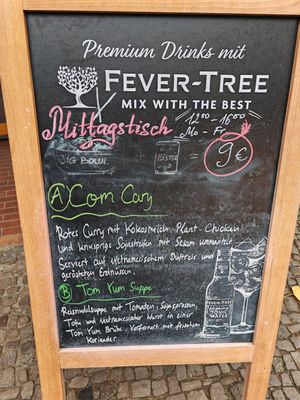 Premium Drinks mit
FEVER-TREE
MIX WITH THE BEST
Mittagstisch
12:00 - 16:00
Mo - Fr
9€
A) Com Cary
Rotes Curry mit Kokosmilch, Plant-Chicken
und knusprige Sojastreifen mit Sesam ummantelt
Serviert auf Vietnamesischem Duftreis und
gerösteten Erdnüssen.
B) Tom Yum Suppe
Reisnudelsuppe mit Tomaten, Sojasprossen
Tofu und Vietnamesischer Wurst in einer
Tom Yum Brühe. Verfeinert mit frischem
Koriander.
FEVER-TREE
TONIC
WATER